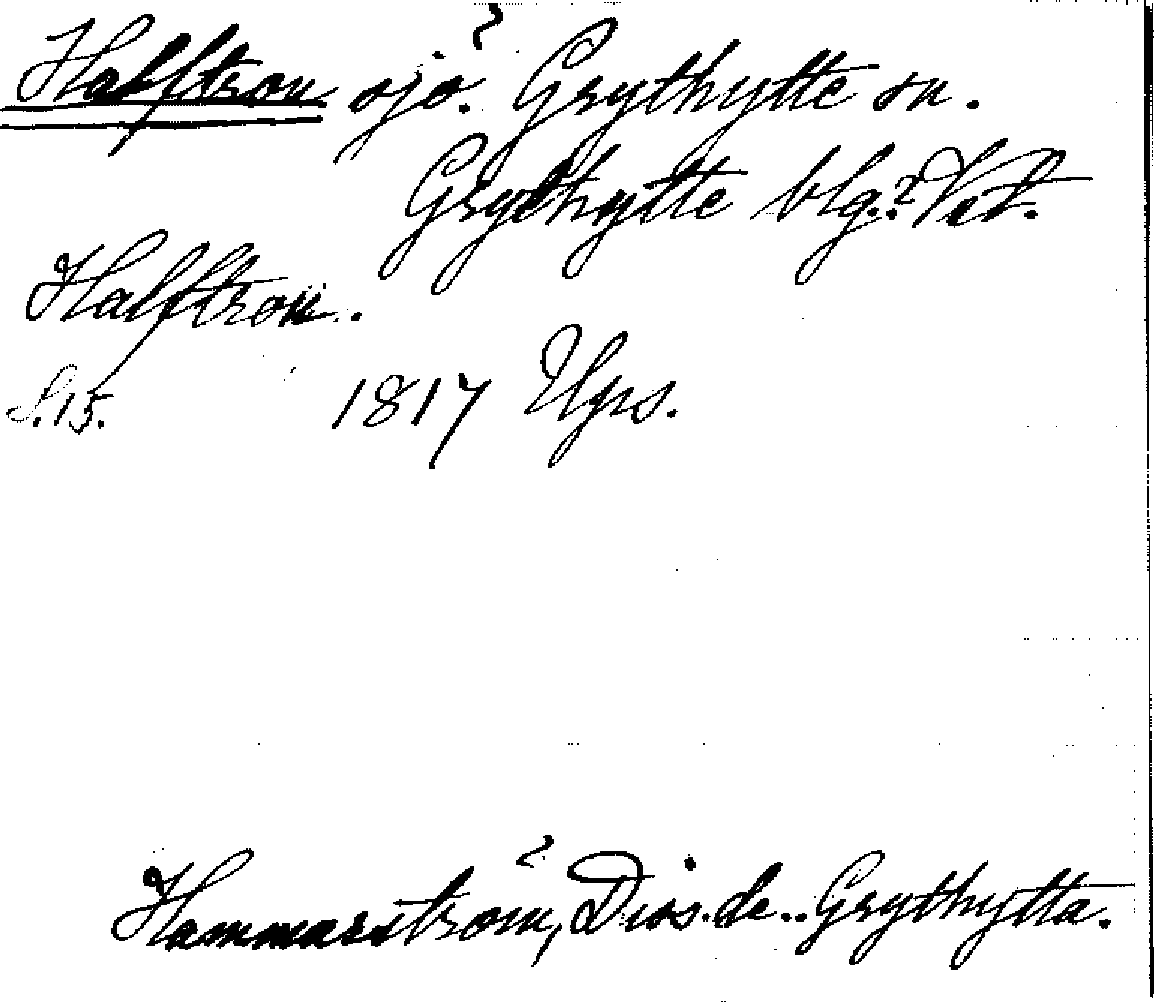 Halftron sjö. Grythytte sn.
Grythytte blg. Vstl.
Halftron.
S.15. 1817 Uprs.
Hammarström, Diss. de.. Grythytta.